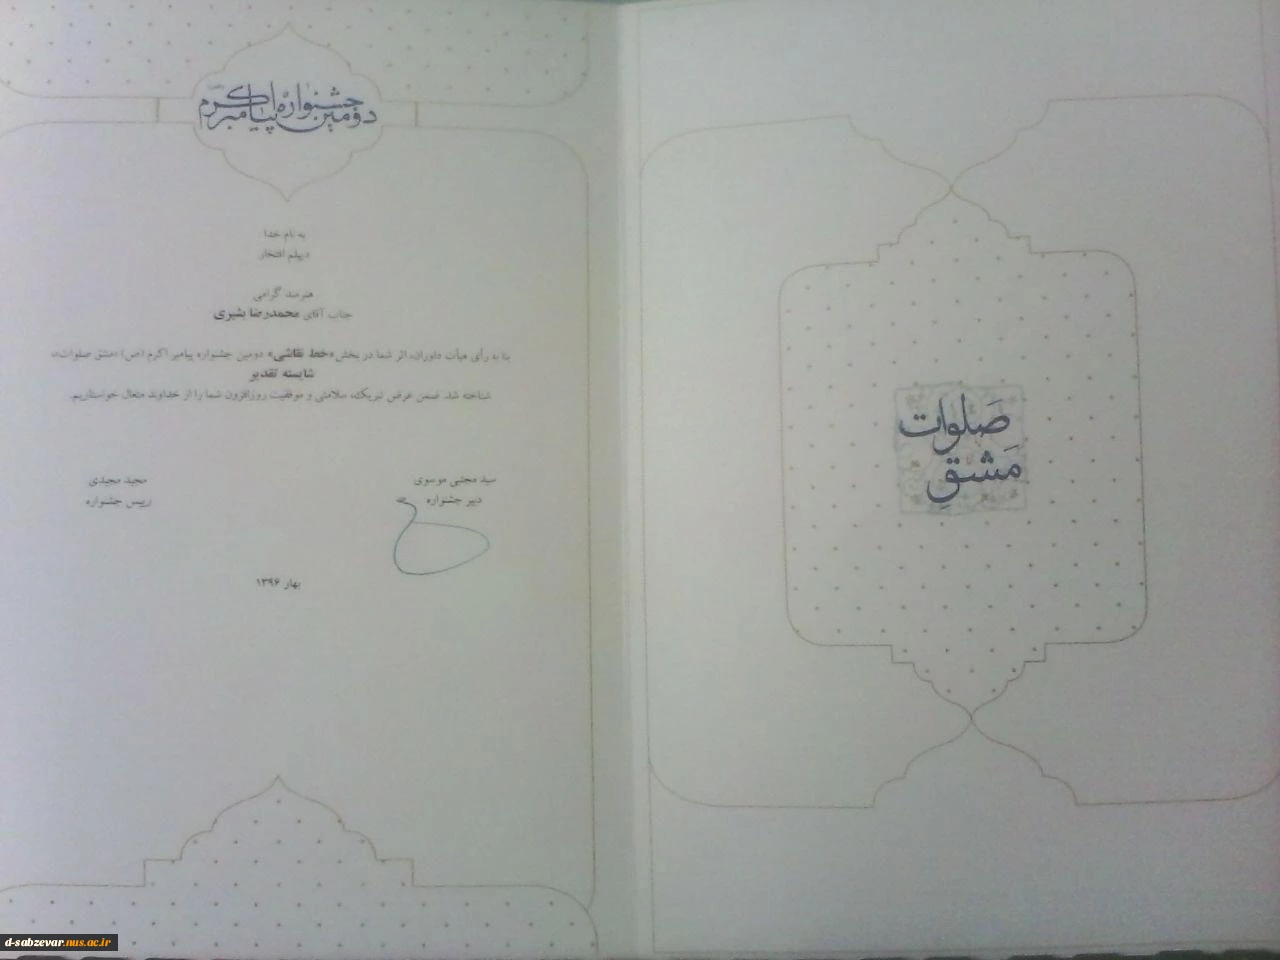 دومین جشنواره پیامبر اکرم
به نام خدا
دیپلم افتخار
هنرمند گرامی
جناب آقای محمدرضا بشیری
بنا به رأی هیأت داوران، اثر شما در بخش «خط نقاشی» دومین جشنواره پیامبر اکرم (ص) «مشق صلوات»،
شایسته تقدیر
شناخته شد. ضمن عرض تبریک، سلامتی و موفقیت روزافزون شما را از خداوند متعال خواستاریم.
سید مجتبی موسوی
دبیر جشنواره
مجید مجیدی
رییس جشنواره
بهار ۱۳۹۶
صلوات
مشقِ
d-sabzevar.nus.ac.ir